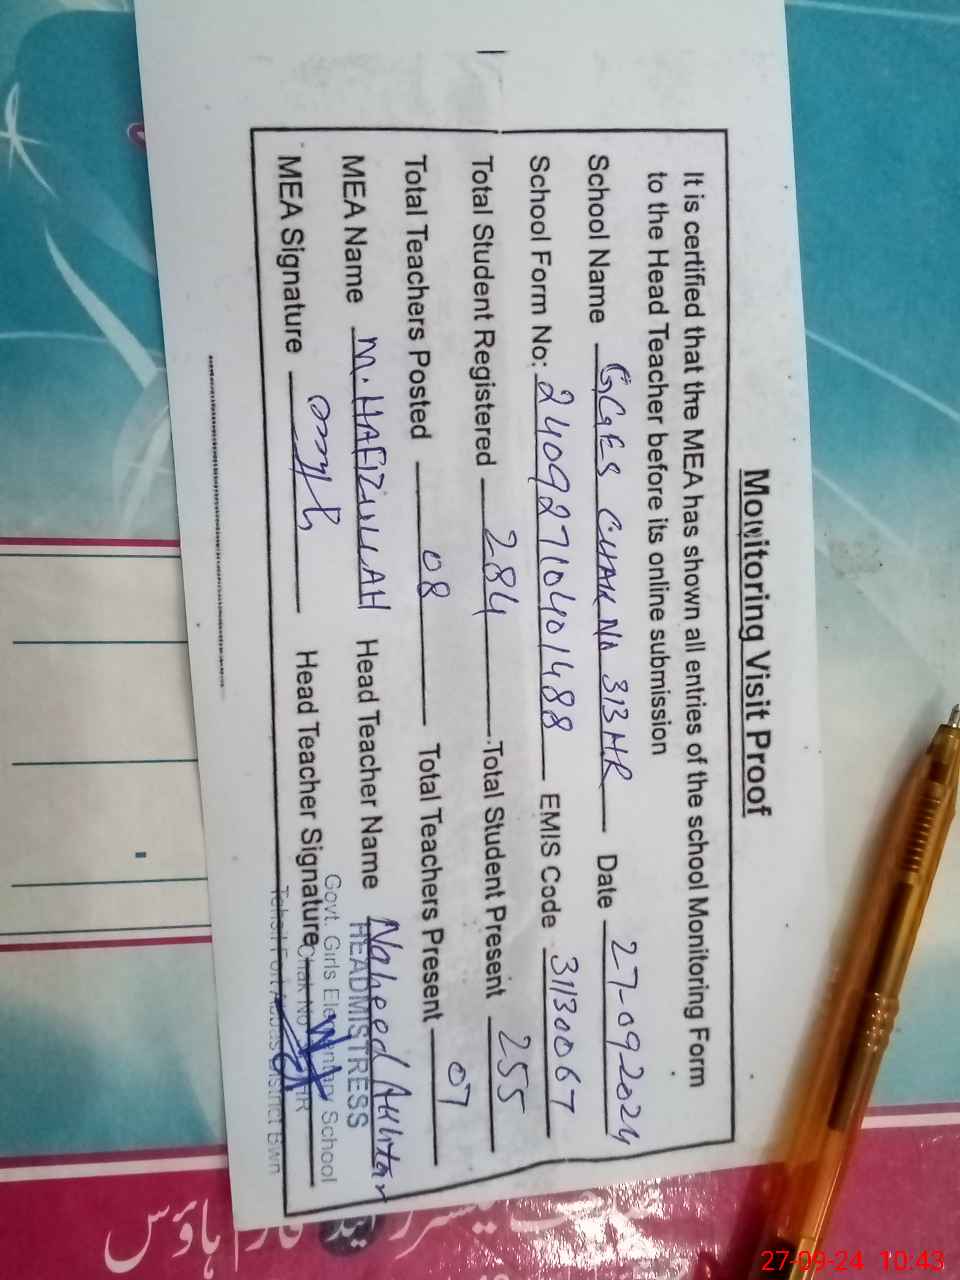 Monitoring Visit Proof
It is certified that the MEA has shown all entries of the school Monitoring Form
to the Head Teacher before its online submission
School Name GGES CHAK No 313 HR Date 27-09-2024
School Form No: 24092710401488 EMIS Code 31300067
Total Student Registered 284 Total Student Present 255
Total Teachers Posted 08 Total Teachers Present 07
MEA Name M. HAFIZULLAH Head Teacher Name Naheed Akhtar
HEADMISTRESS
MEA Signature Head Teacher Signature
Govt. Girls Elementary School
Chak No HR
Tehsil Fort Abbas District Bwn
ہاؤس
27-09-24 10:43